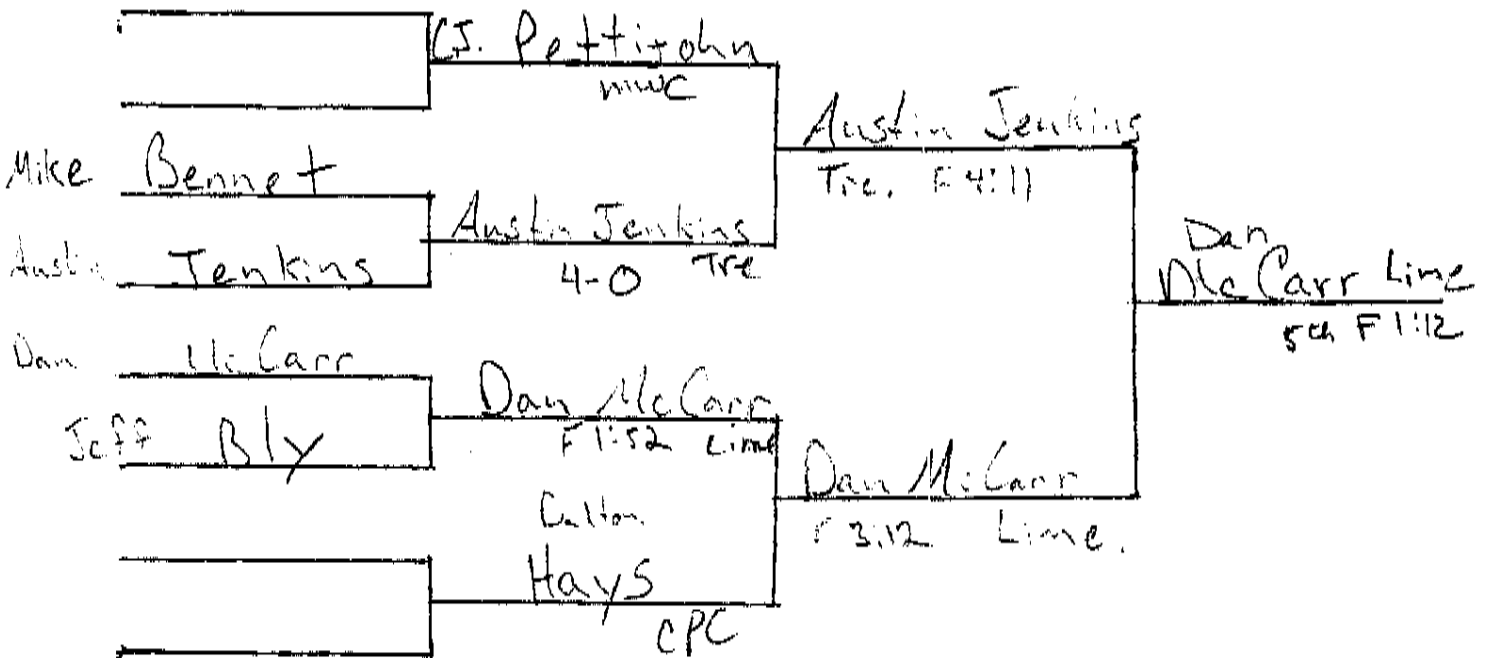 C.J. Pettijohn
MWC
Mike Bennet
Austin Jenkins
Austin Jenkins
4-0 Tre
Austin Jenkins
Tre. F 4:11
Dan McCarr
Jeff Bly
Dan McCarr
F 1:52 Lime
Hays
CPC
Dan McCarr
F 3:12 Lime.
Dan
McCarr Lime
5th F 1:12